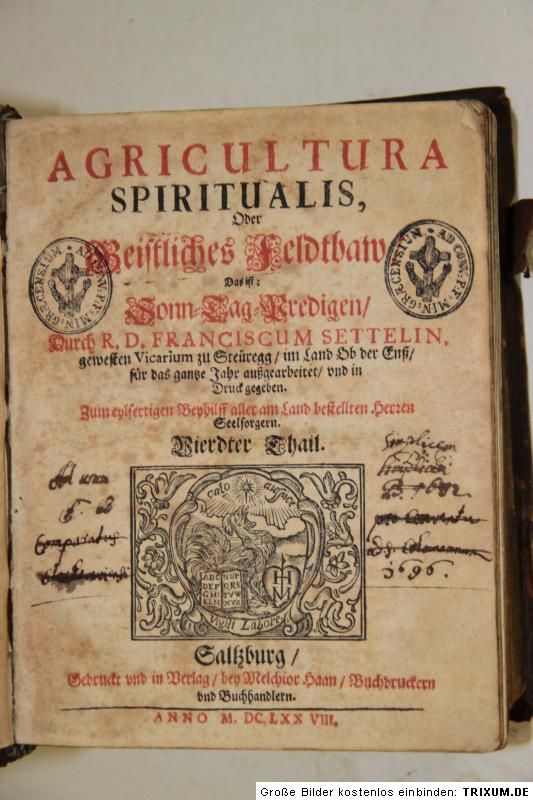 AGRICULTURA
SPIRITUALIS,
Oder
Geistliches Feldtbaw
Das ist:
Sonn-Tag-Predigen/
Durch R. D. FRANCISCUM SETTELIN,
gewesten Vicarium zu Steüregg/ im Land Ob der Enß/
für das gantze Jahr außgearbeitet/ vnd in
Druck gegeben.
Zum eylfertigen Beyhilff aller am Land bestellten Herzen
Seelsorgern.
Vierdter Thail.
AD CONV. F.F. MIN. GRÆCENSIUM
AD CONV. F.F. MIN. GRÆCENSIUM
Ad usum
Comparatus
simplicem
1692
pro Conventu
ad S. Colomannum
1696.
Caelo auspice
ABC NOP
DEF QRS
GHI TVW
KLM XYZ
HM
Vigili Labore
Saltzburg/
Gedruckt vnd in Verlag/ bey Melchior Haan/ Buchdruckern
vnd Buchhandlern.
ANNO M. DC. LXX VIII.
Große Bilder kostenlos einbinden: TRIXUM.DE